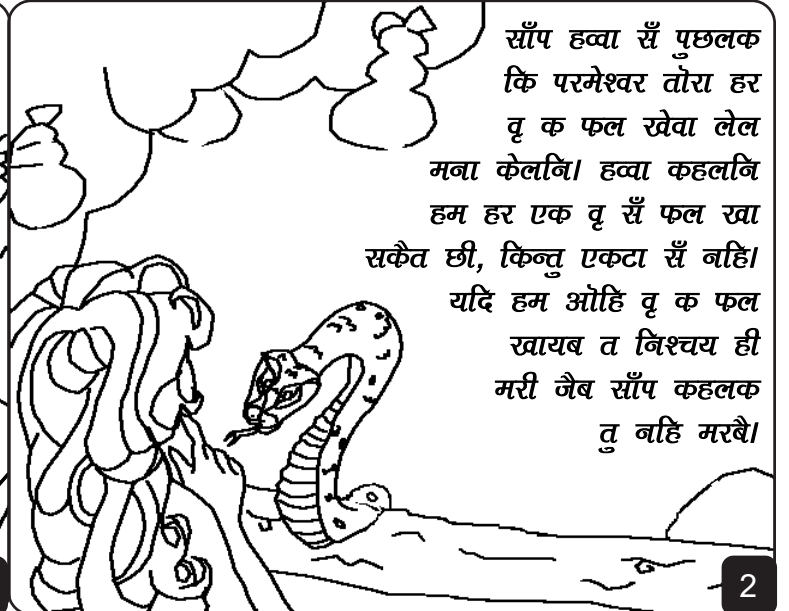 साँप हव्वा सँ पुछलक
कि परमेश्वर तॊरा हर
वृ क फल खेवा लेल
मना केलनि। हव्वा कहलनि
हम हर एक वृ सँ फल खा
सकैत छी, किन्तु एकटा सँ नहि।
यदि हम ऒहि वृ क फल
खायब त निश्चय ही
मरी जैब साँप कहलक
तु नहि मरबै।
2